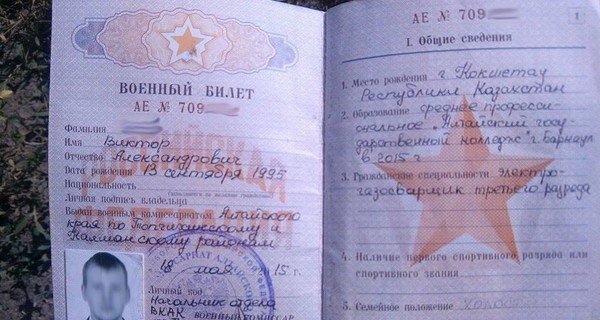 ВОЕННЫЙ БИЛЕТ
АЕ № 709
Фамилия
Имя Виктор
Отчество Александрович
Дата рождения 13 сентября 1995
Национальность
Личная подпись владельца
Выдан военным комиссариатом Алтайского
края по Топчихинскому и
Калманскому районам
18 мая 15 г.
Личный код
Начальник отдела
ВКАК ВОЕННЫЙ КОМИССАР
АЕ № 709
1
I. Общие сведения
1. Место рождения г. Кокшетау
Республики Казахстан
2. Образование среднее професси-
ональное "Алтайский госу-
дарственный колледж" г. Барнаул
в 2015 г
3. Гражданские специальности Электро-
газосварщик третьего разряда
4. Наличие первого спортивного разряда или
спортивного звания
5. Семейное положение